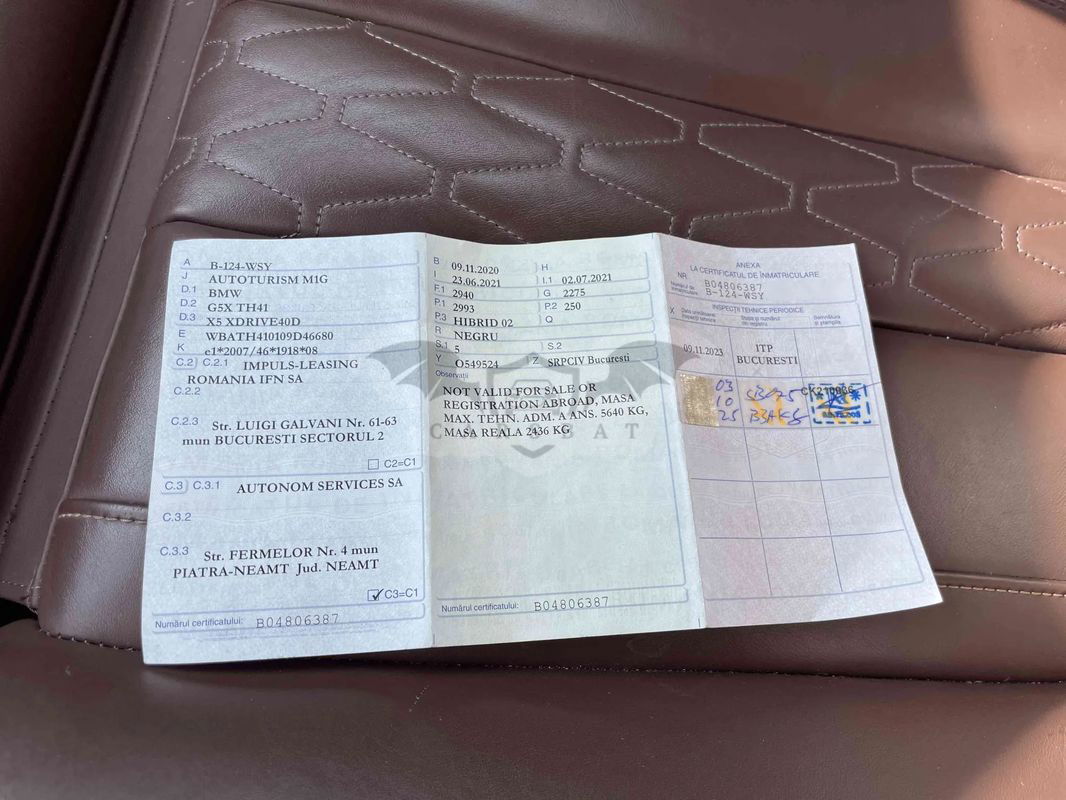 A B-124-WSY
J AUTOTURISM M1G
D.1 BMW
D.2 G5X TH41
D.3 X5 XDRIVE40D
E WBATH410109D46680
K e1*2007/46*1918*08
C.2 C.2.1 IMPULS-LEASING
ROMANIA IFN SA
C.2.2
C.2.3 Str. LUIGI GALVANI Nr. 61-63
mun BUCURESTI SECTORUL 2
C2=C1
C.3 C.3.1 AUTONOM SERVICES SA
C.3.2
C.3.3 Str. FERMELOR Nr. 4 mun
PIATRA-NEAMT Jud. NEAMT
C3=C1
Numărul certificatului: B04806387
B 09.11.2020 H
I 23.06.2021 I.1 02.07.2021
F.1 2940 G 2275
P.1 2993 P.2 250
P.3 HIBRID 02 Q
R NEGRU
S.1 5 S.2
Y O549524 Z SRPCIV Bucuresti
Observații
NOT VALID FOR SALE OR
REGISTRATION ABROAD, MASA
MAX. TEHN. ADM. A ANS. 5640 KG,
MASA REALA 2436 KG
Numărul certificatului: B04806387
ANEXA
LA CERTIFICATUL DE ÎNMATRICULARE
NR. B04806387
Numărul de
înmatriculare B-124-WSY
INSPECȚII TEHNICE PERIODICE
X Data următoarei
inspecții tehnice
Stația și numărul
din registru
Semnătura
și ștampila
09.11.2023 ITP
BUCURESTI
03
10
25